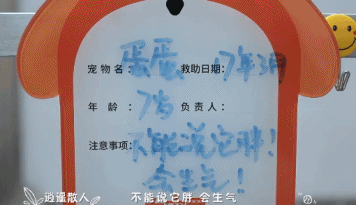 宠物名：蛋蛋 救助日期：17年3月
年龄：7岁 负责人：
注意事项：不能说它胖！
会生气！
逍遥散人 不能说它胖 会生气